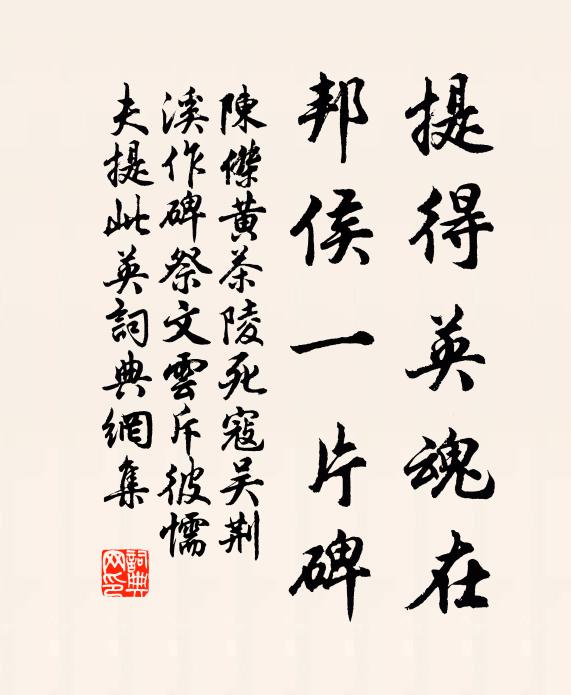 提得英魂在
邦侯一片碑
陳傑黄茶陵死寇吴荆
溪作碑祭文雲斥彼懦
夫提此英詞典網集
詞典網印